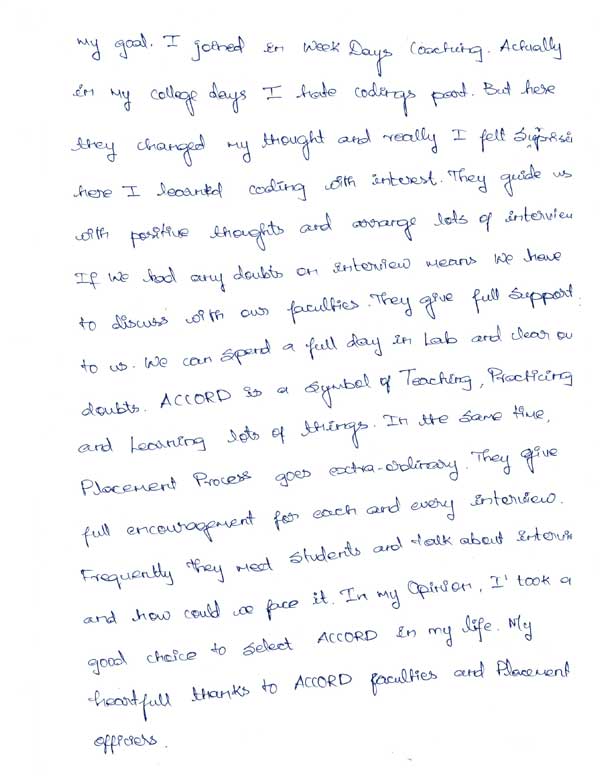 my goal. I joined in Week Days Coaching. Actually
in my college days I hate codings part. But here
they changed my thought and really I felt
here I learntd coding with interest. They guide us
with positive thoughts and arrange lots of interview
If we had any doubts on interview means we have
to discuss with our faculties. They give full support
to us. We can spend a full day in Lab and clear ou
doubts. ACCORD is a symbol of Teaching, Practicing
and Learning lots of things. In the same time,
Placement Process goes extra-ordinary. They give
full encouragement for each and every interview.
Frequently they meet students and talk about intervi
and how could we face it. In my Opinion, I' took a
good choice to select ACCORD in my life. My
heartfull thanks to ACCORD faculties and Placement
officiers.